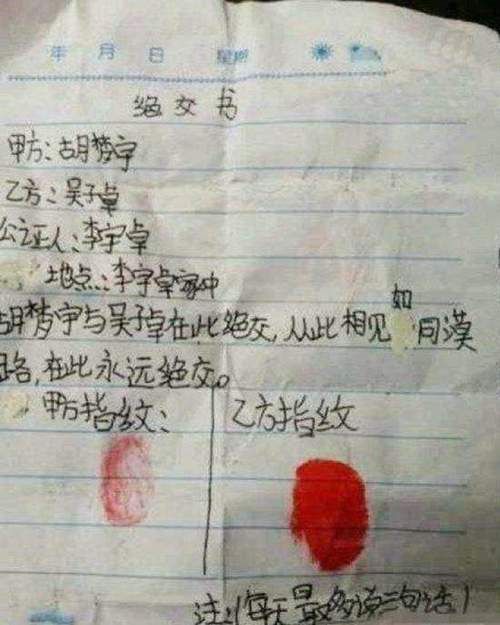 年 月 日 星期
绝交书
甲方:胡梦宇
乙方:吴子卓
公证人:李宇卓
地点:李宇卓家中
胡梦宇与吴子卓在此绝交,从此相见如同漠
路,在此永远绝交。
甲方指纹: 乙方指纹
注:(每天最多谈三句话)